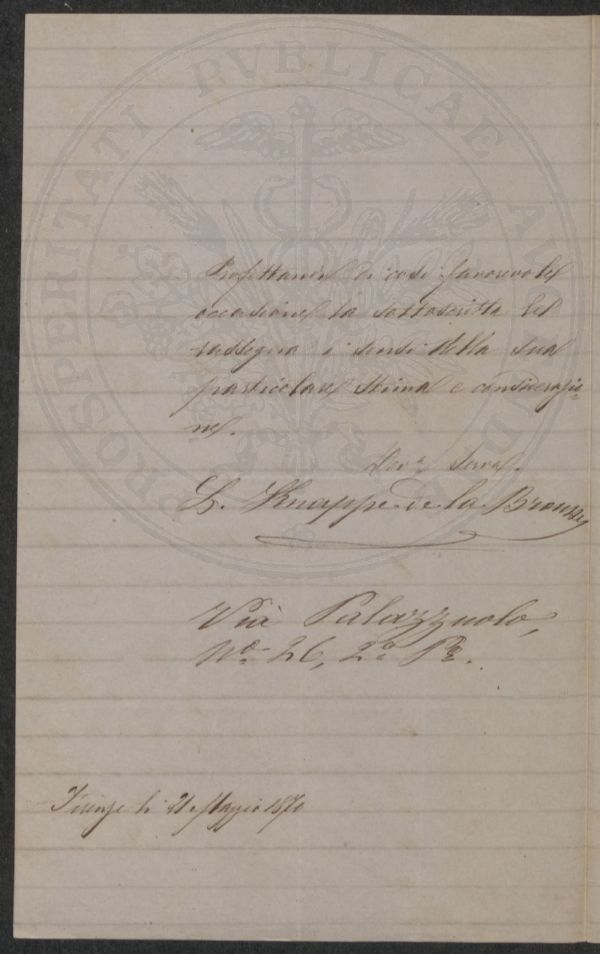 PROSPERITATI PVBLICAE AVGENDAE
Profittando di così favorevole
occasione la sottoscritta Le
rassegna i sensi della sua
particolare stima e considerazio-
ne.
Dev.ª Serva.
Knappe de la
Via Palazzuolo,
No. 26, 2º P.
Firenze li 21 Maggio 1870